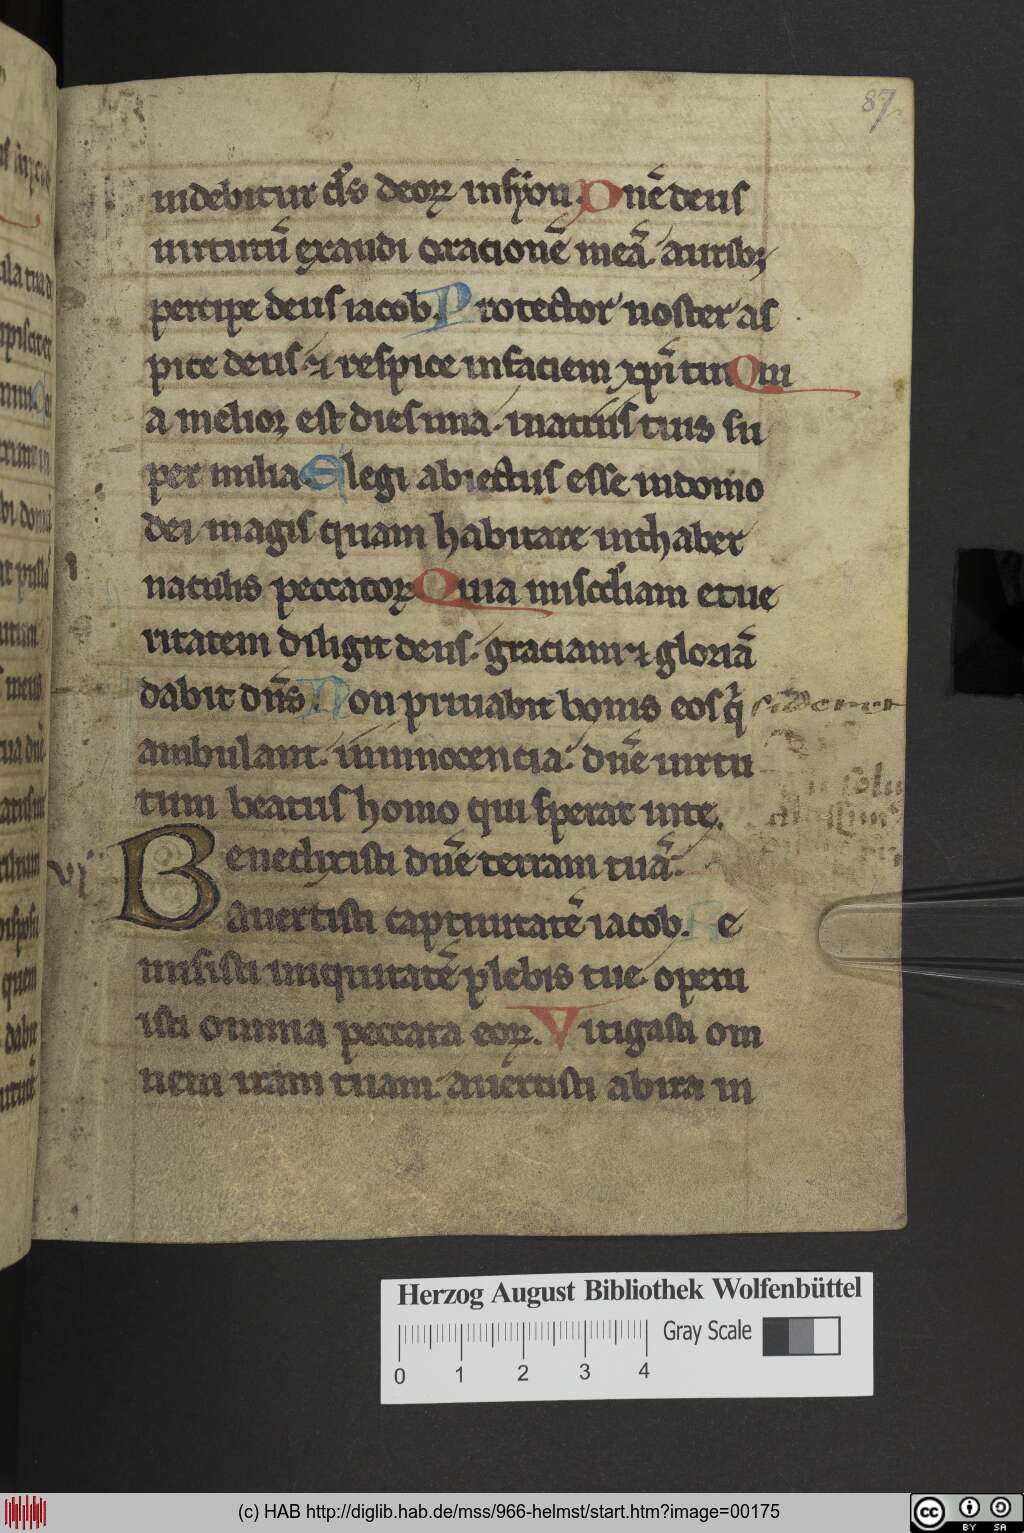 87
uidebitur d̄s deoꝝ in syon. Dn̄e deus
uirtutū exaudi oracionē meā. aurib;
percipe deus iacob. Protector noster as
pice deus. ⁊ respice in faciem xp̄i tui Qui
a melior est dies una. in atriis tuis su
per milia. Elegi abiectus esse in domo
dei magis quam habitare in thaber
naculis peccatoꝝ Quia misc̄diam et ue
ritatem diligit deus. graciam ⁊ gloriā
dabit dn̄s. Non priuabit bonis eos q̄
ambulant. in innocencia. dn̄e uirtu
tum beatus homo qui sperat in te.
Benedixisti dn̄e terram tuā.
auertisti captiuitatē iacob. Re
misisti iniquitatē plebis tue. operu
isti omnia peccata eoꝝ. Mitigasti om
nem iram tuam. auertisti ab ira in
Herzog August Bibliothek Wolfenbüttel
Gray Scale
0 1 2 3 4
(c) HAB http://diglib.hab.de/mss/966-helmst/start.htm?image=00175
cc BY SA